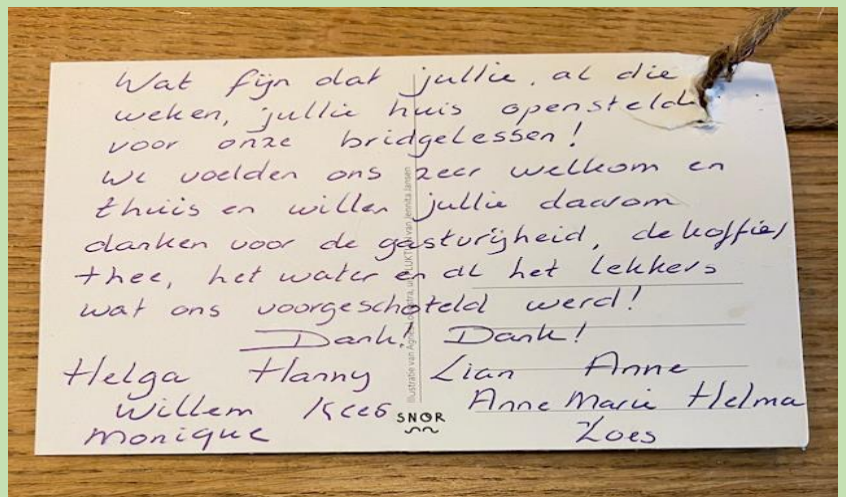 Wat fijn dat jullie, al die
weken, jullie huis openstelde
voor onze bridgelessen!
We voelden ons zeer welkom en
thuis en willen jullie daarom
danken voor de gastvrijheid, de koffie/
thee, het water en al het lekkers
wat ons voorgeschoteld werd!
Dank! Dank!
Helga Hanny Lian Anne
Willem Kees Anne Marie Helma
SNOR
Monique Loes
Illustratie van Agnes
van Jennita Jansen